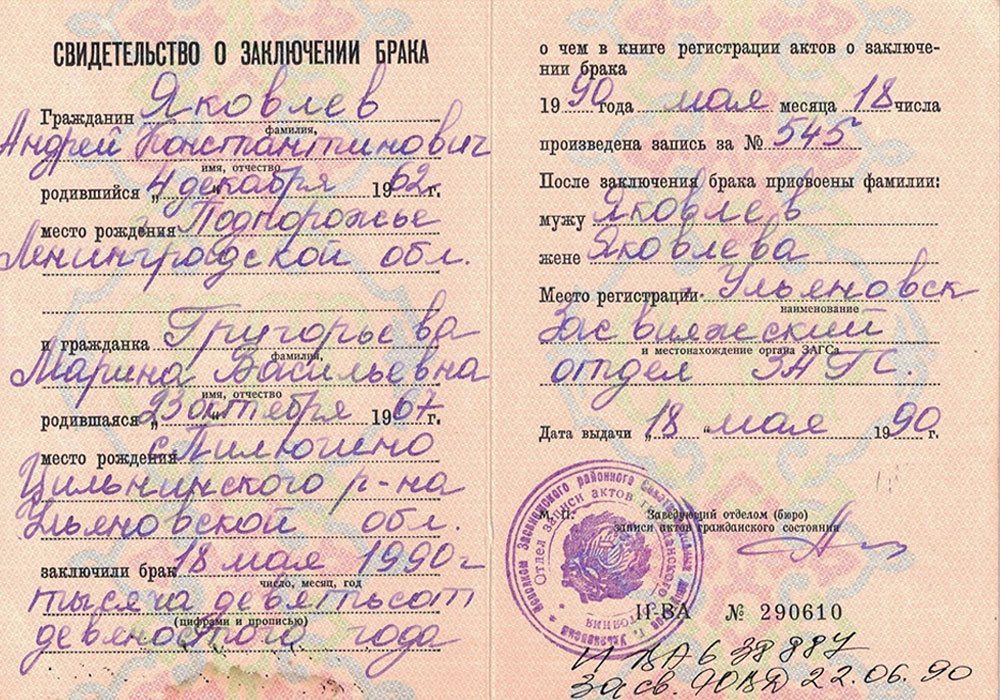 СВИДЕТЕЛЬСТВО О ЗАКЛЮЧЕНИИ БРАКА
Гражданин Яковлев
фамилия,
Андрей Константинович
имя, отчество
родившийся „4 декабря 1962 г.
место рождения Подпорожье
Ленинградской обл.
и гражданка Григорьева
фамилия,
Марина Васильевна
имя, отчество
родившаяся „23 октября 1967 г.
место рождения с. Пилюгино
Цильнинского р-на
Ульяновской обл.
заключили брак 18 мая 1990 г
число, месяц, год
тысяча девятьсот
(цифрами и прописью)
девяностого года
о чем в книге регистрации актов о заключе-
нии брака
1990 года мая месяца 18 числа
произведена запись за № 545
После заключения брака присвоены фамилии:
мужу Яковлев
жене Яковлева
Место регистрации Ульяновск
наименование
Засвияжский
и местонахождение органа ЗАГСа
отдел ЗАГС.
Дата выдачи „18 “ мая 1990 г.
М. П.
Заведующий отделом (бюро)
записи актов гражданского состояния
Отдел записи актов гражданского состояния
II-ВА № 290610
638887
22.06.90